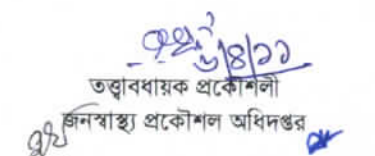 ৬/৪/২১
তত্ত্বাবধায়ক প্রকৌশলী
জনস্বাস্থ্য প্রকৌশল অধিদপ্তর